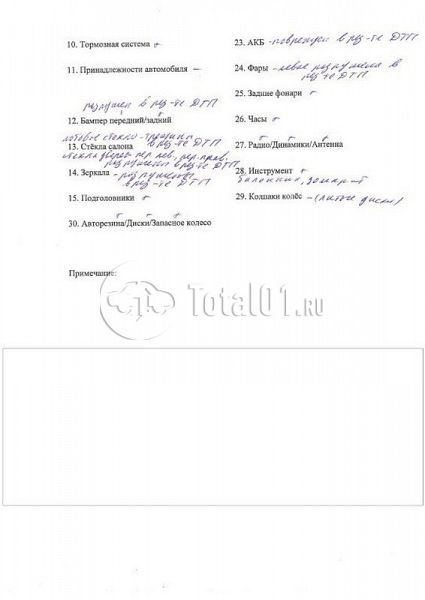 10. Тормозная система +
11. Принадлежности автомобиля –
разрушен в рез-те ДТП
12. Бампер передний/задний
лобовое стекло - трещины
13. Стёкла салона в рез-те ДТП
стекла дверей пер. лев., пер. прав.
разрушены в рез-те ДТП
14. Зеркала - разрушены
в рез-те ДТП
15. Подголовники +
30. Авторезина/Диски/Запасное колесо
23. АКБ - в рез-те ДТП
24. Фары - левая разрушена в
рез-те ДТП
25. Задние фонари +
26. Часы +
27. Радио/Динамики/Антенна
28. Инструмент +
балонник, домкрат
29. Колпаки колёс - (литые диски)
Примечание:
Total01.RU